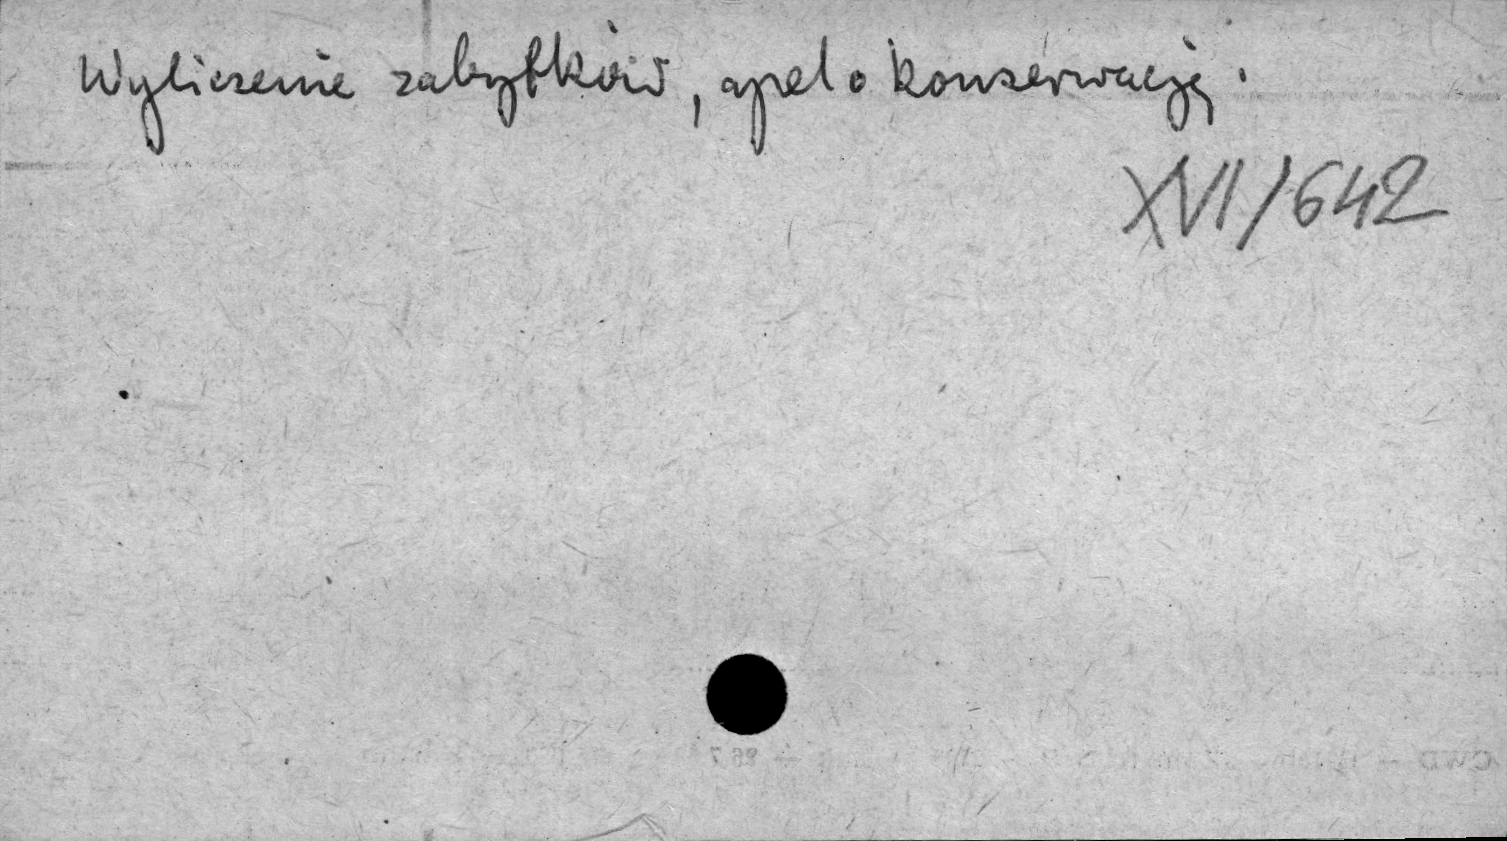 Wyliczenie zabytków, apel o konserwację.
XVI/642